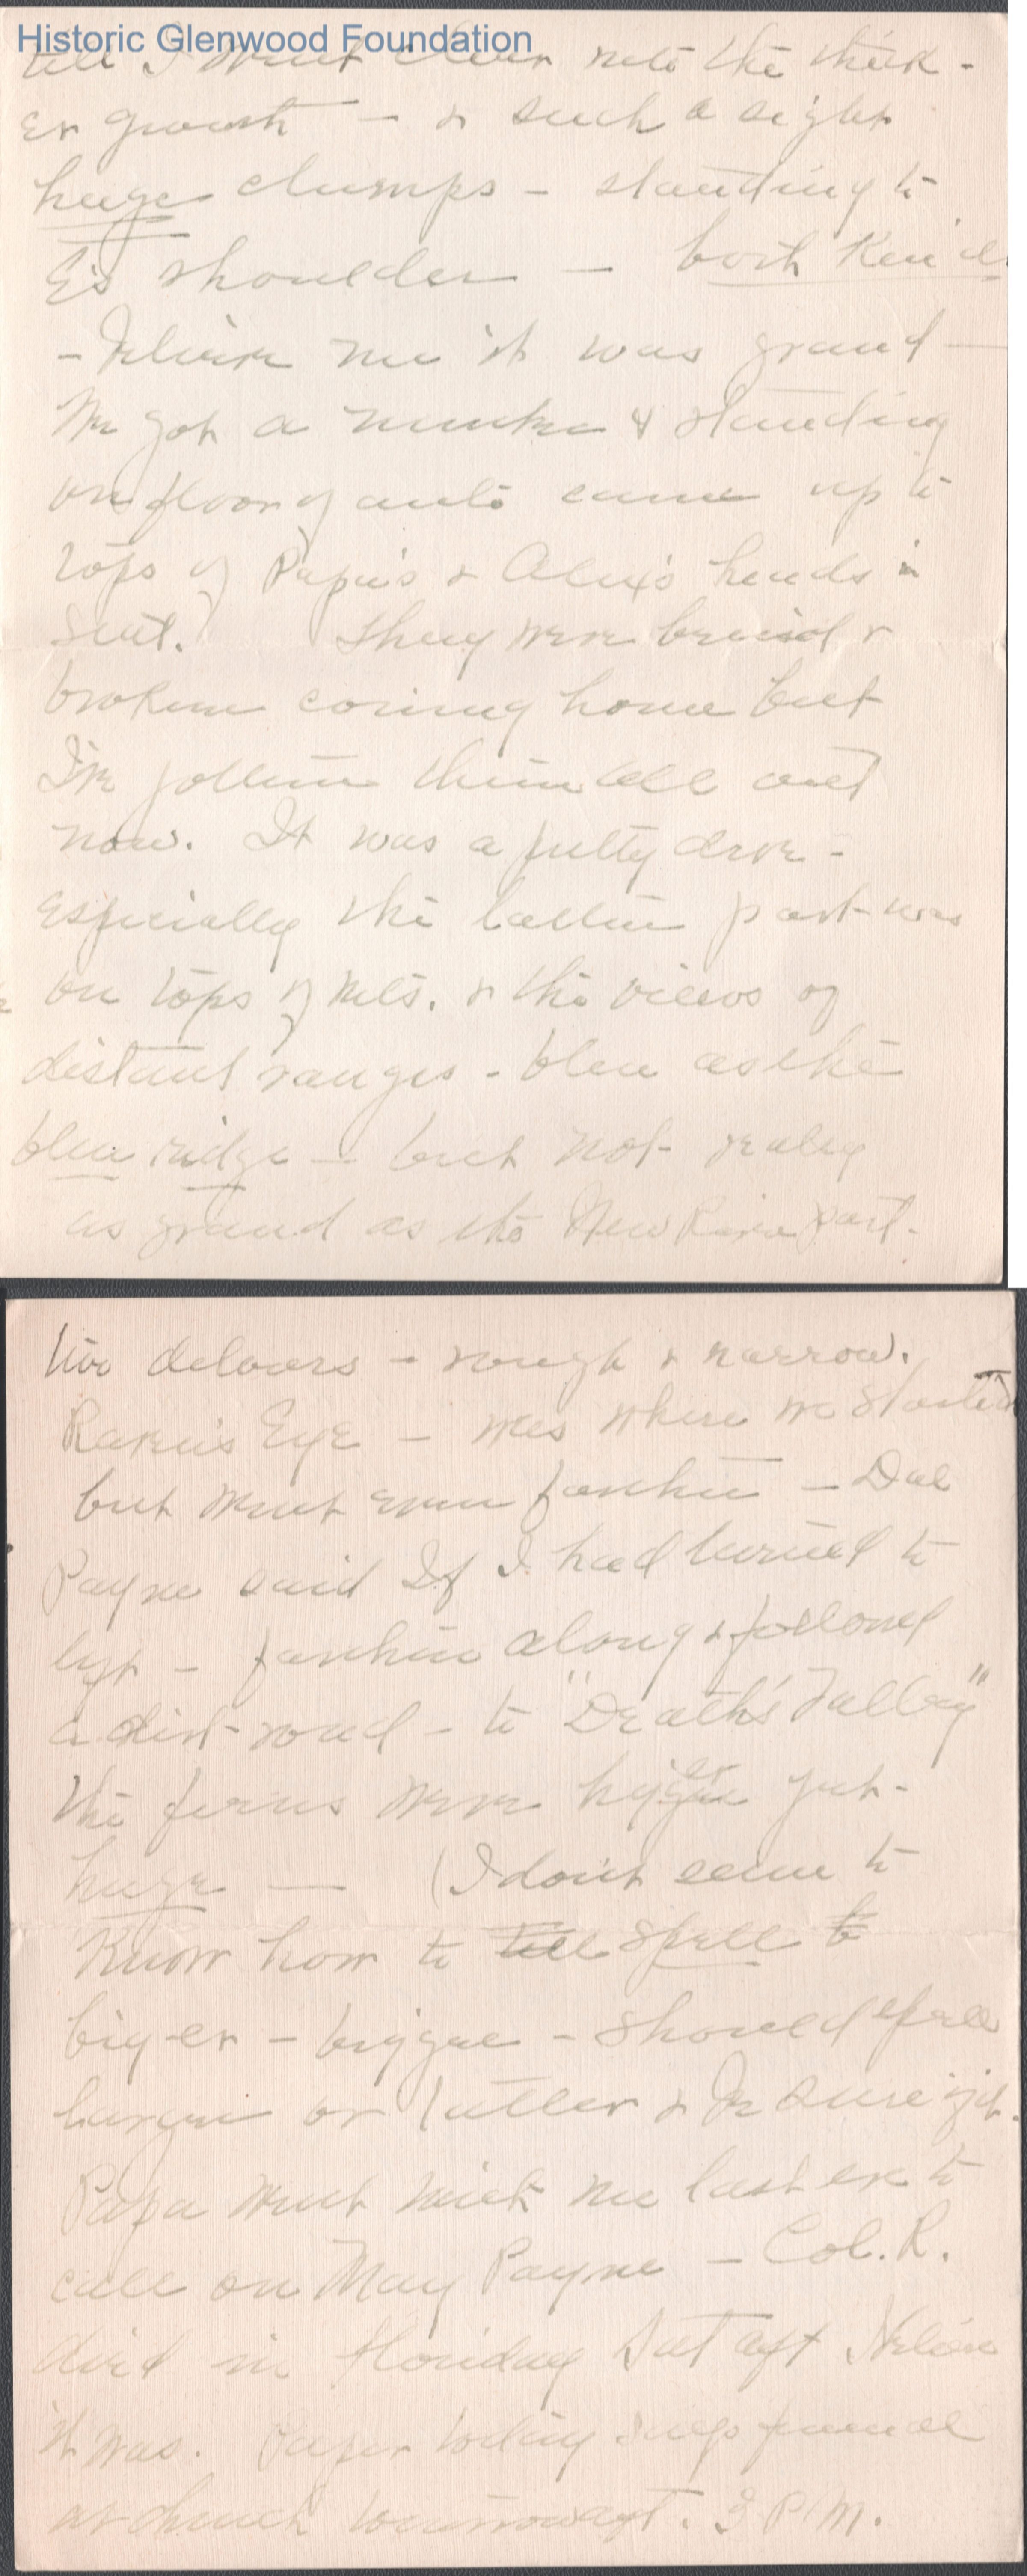 Historic Glenwood Foundation
till I went clear into the thick-
er growth - & such a sight
huge clumps - standing to
E's shoulder - both kinds
- Believe me it was grand -
We got a number & standing
on floor of auto came up to
tops of Papa's & Alex's heads in
seat. They were bruised &
broken coming home but
I've gotten them all out
now. It was a pretty drive -
especially the latter part was
on tops of Mts. & the views of
distant ranges - blue as the
blue ridge - but not really
as grand as the New River part.
two detours - rough & narrow.
Raven's Eye - was where we started
but went even farther - Dal
Payne said If I had turned to
left - farther along & followed
a dirt road - to "Death's Valley"
the ferns were bigger yet -
huge - (I don't seem to
Know how to tell spell to
big-er - bigger - should spell
larger or taller & be sure of it.
Papa went with me last eve to
call on May Payne - Col. R.
died in Florida Sat aft I believe
it was. Paper today says funeral
at church tomorrow aft. 3 P.M.